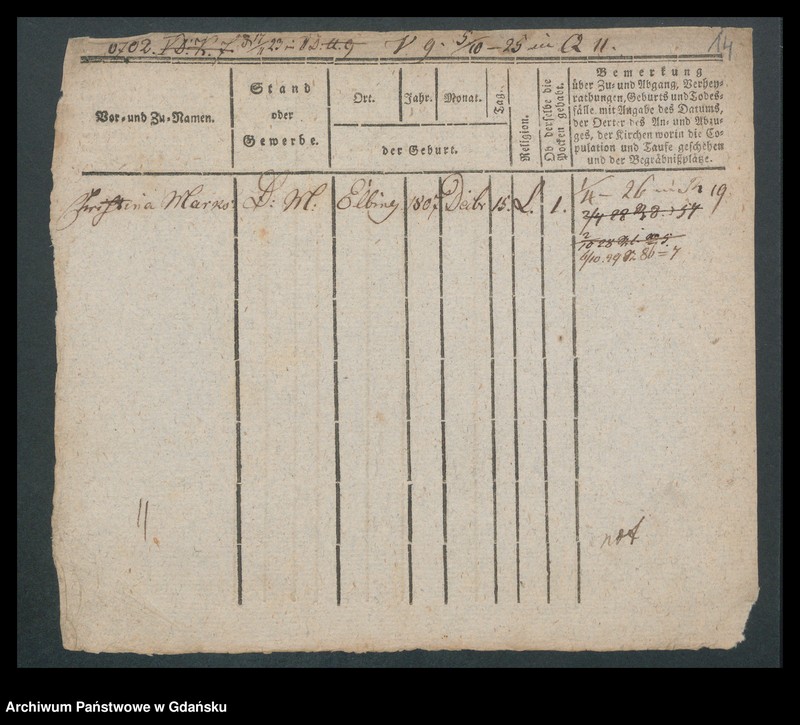 V. 9. 5/10 - 25 in Q 11.
14
Vor- und Zu-Namen.
Stand
oder
Gewerbe.
Ort.
Jahr.
Monat.
Tag.
der Geburt.
Religion.
Ob derselbe die
Pocken gehabt.
Bemerkung
über Zu- und Abgang, Verhey-
rathungen, Geburts und Todes-
fälle mit Angabe des Datums,
der Oerter des An- und Abzu-
ges, der Kirchen worin die Co-
pulation und Taufe geschehen
und der Begräbnißplätze.
Christina D: M: Elbing 1807 Decbr 15. L. 1.
19
Archiwum Państwowe w Gdańsku